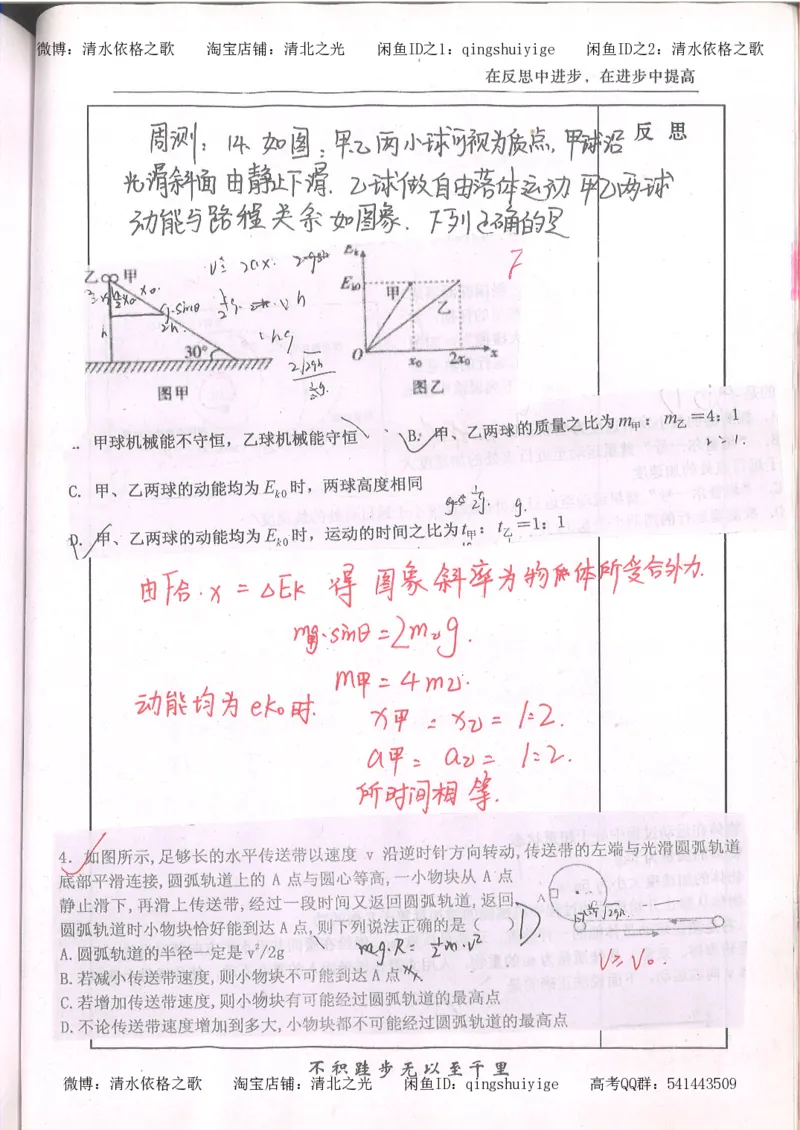 微博：清水依格之歌 淘宝店铺：清北之光 闲鱼ID之1：qingshuiyige 闲鱼ID之2：清水依格之歌
在反思中进步，在进步中提高
反思
周测：14. 如图：甲乙两小球可视为质点，甲球沿
光滑斜面由静止下滑．乙球做自由落体运动 甲乙两球
动能与路程关系如图象．下列正确的是
乙 甲
h
30°
图甲
Ek
Ek0
甲
乙
O x0 2x0 x
图乙
甲球机械能不守恒，乙球机械能守恒
B. 甲、乙两球的质量之比为m甲：m乙=4：1
C. 甲、乙两球的动能均为Ek0时，两球高度相同
D. 甲、乙两球的动能均为Ek0时，运动的时间之比为t甲：t乙=1：1
由F合·x = ΔEk 得 图象斜率为物体所受合外力.
mg·sinθ=2m乙g.
m甲=4m乙.
动能均为ek0时.
x甲：x乙=1:2.
a甲：a乙=1:2.
所时间相等.
4. 如图所示,足够长的水平传送带以速度 v 沿逆时针方向转动,传送带的左端与光滑圆弧轨道
底部平滑连接,圆弧轨道上的 A 点与圆心等高,一小物块从 A 点
静止滑下,再滑上传送带,经过一段时间又返回圆弧轨道,返回
圆弧轨道时小物块恰好能到达 A 点,则下列说法正确的是（ ）D
A
A.圆弧轨道的半径一定是 v²/2g
m.g.R=½m·v²
B.若减小传送带速度,则小物块不可能到达 A 点
V≥V₀.
C.若增加传送带速度,则小物块有可能经过圆弧轨道的最高点
D.不论传送带速度增加到多大,小物块都不可能经过圆弧轨道的最高点
不积跬步无以至千里
微博：清水依格之歌 淘宝店铺：清北之光 闲鱼ID：qingshuiyige 高考QQ群：541443509